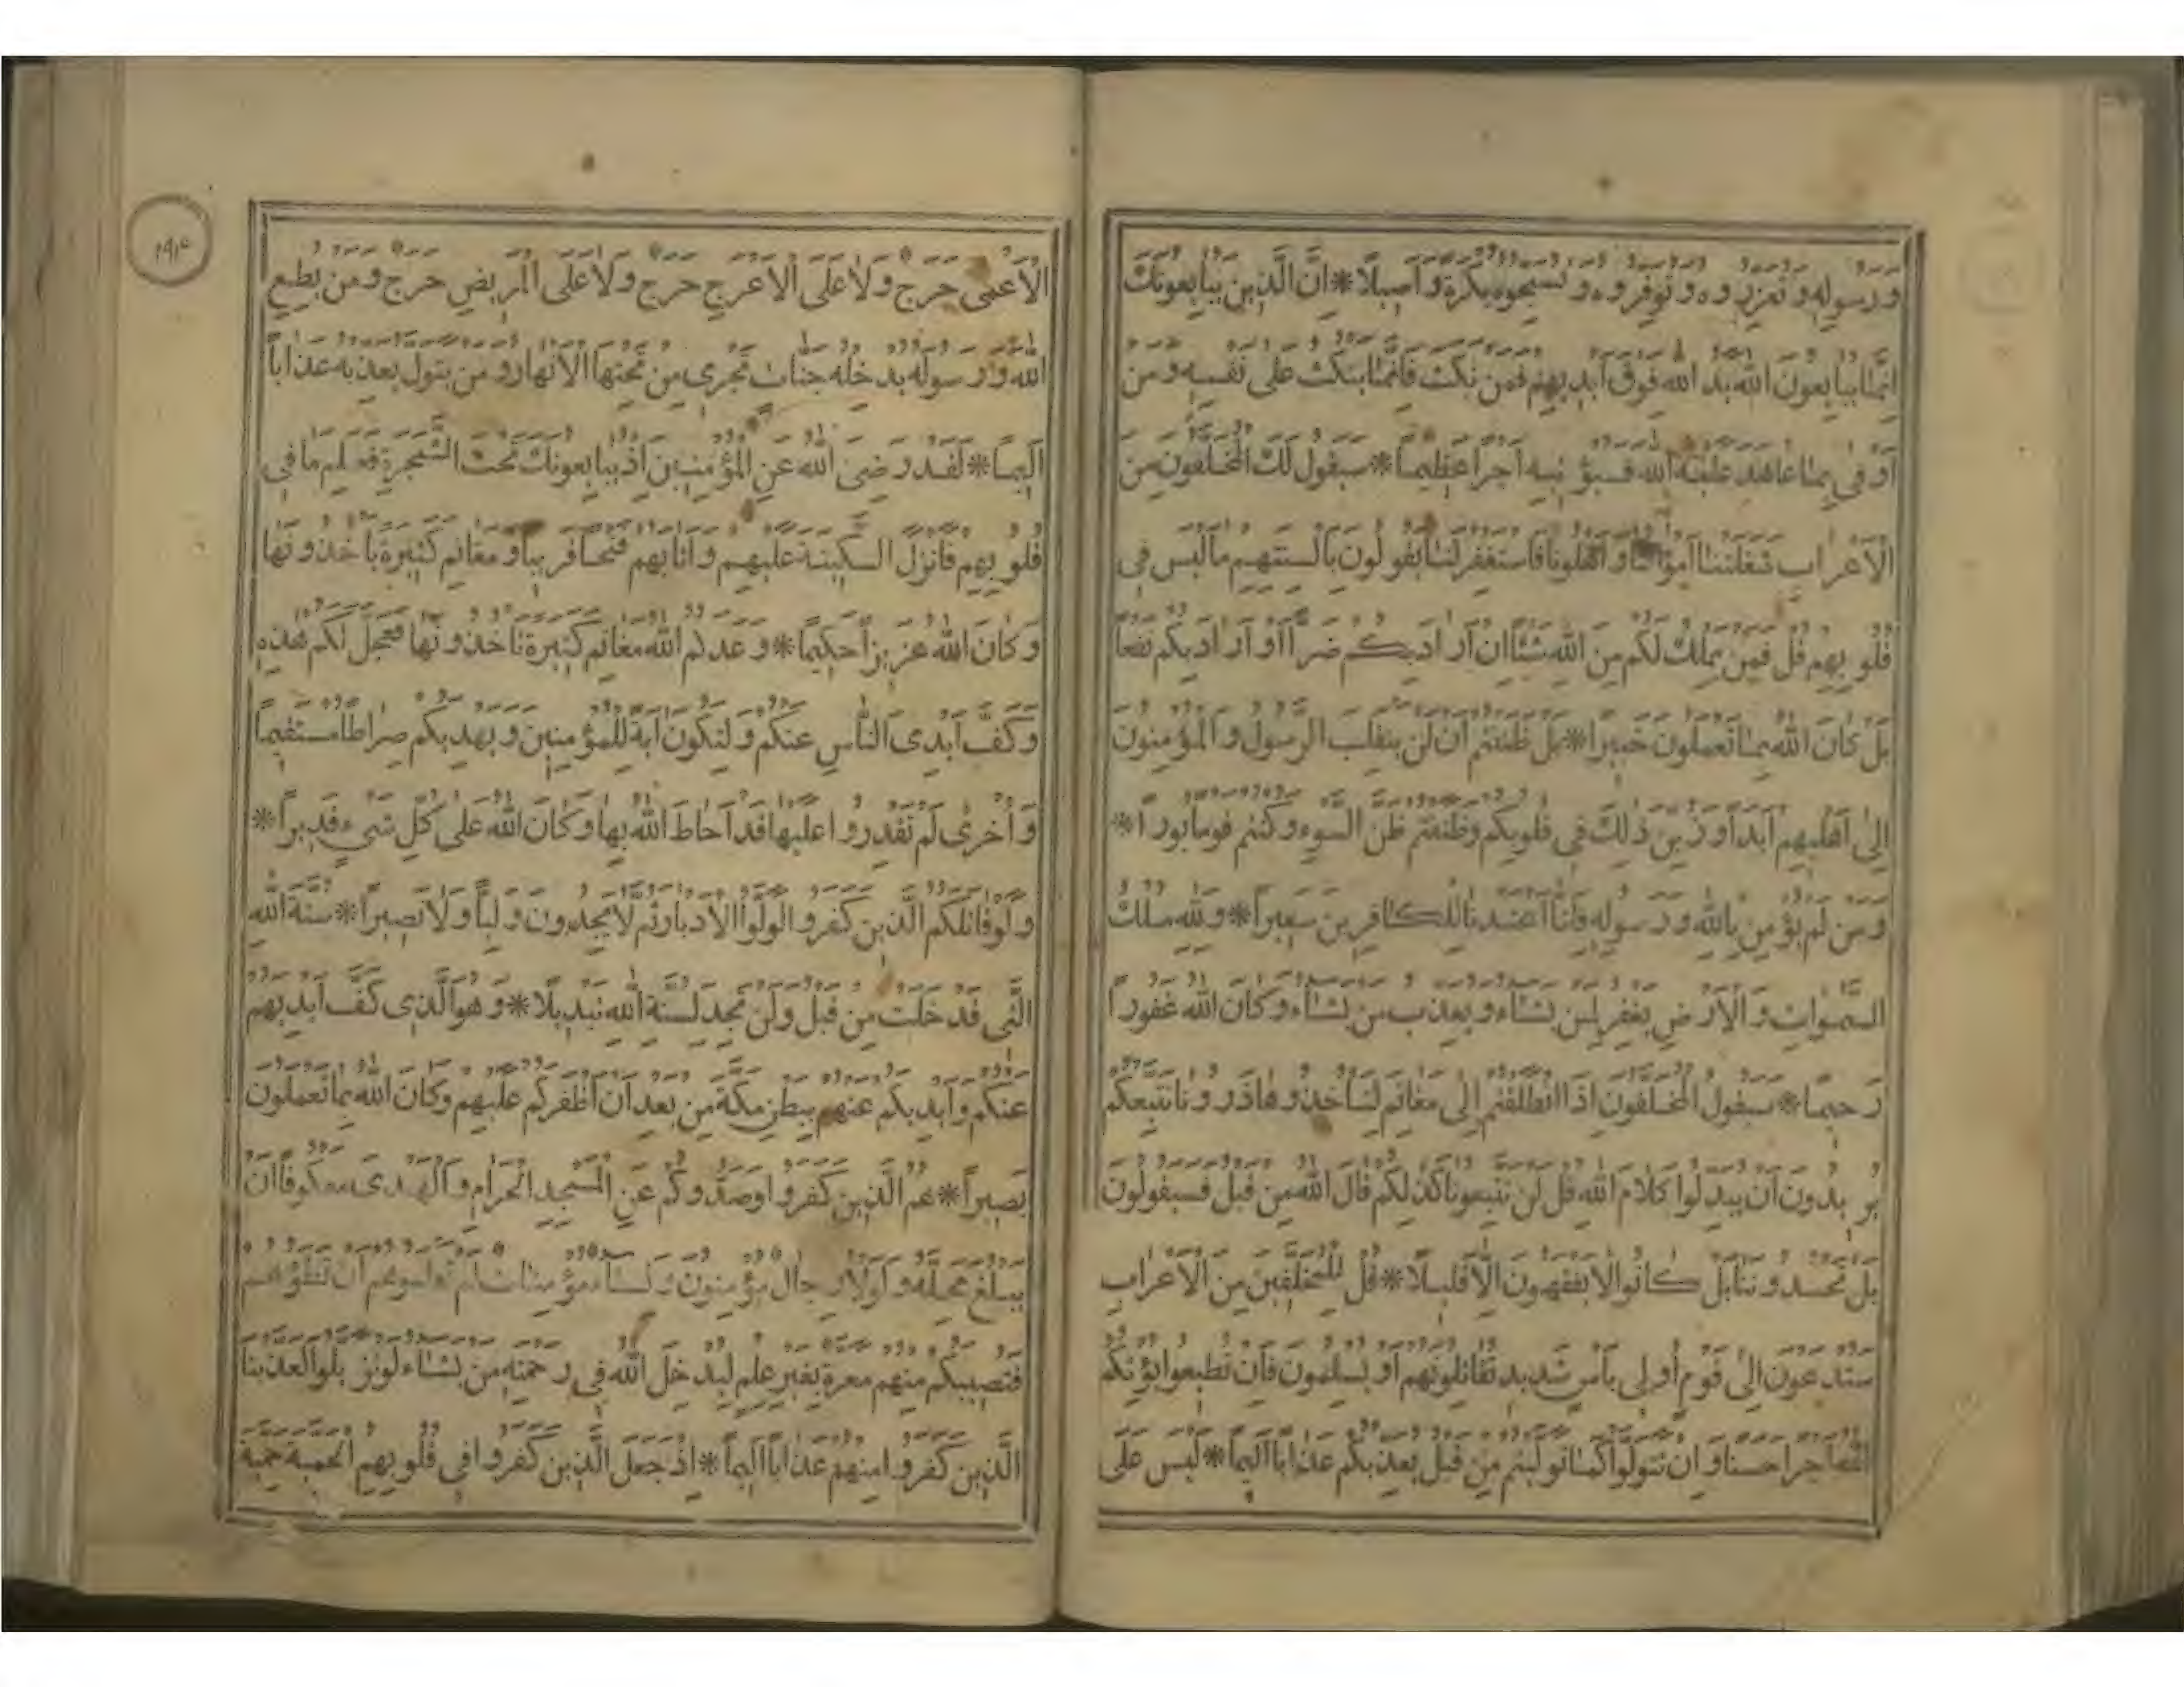 ورسوله وتعزروه وتوقروه وتسبحوه بكرة وأصيلا * ان الذين يبايعونك
انما يبايعون الله يد الله فوق ايديهم فمن نكث فانما ينكث على نفسه ومن
اوفى بما عاهد عليه الله فسيؤتيه اجرا عظيما * سيقول لك المخلفون من
الاعراب شغلتنا اموالنا واهلونا فاستغفر لنا يقولون بالسنتهم ما ليس فى
قلوبهم قل فمن يملك لكم من الله شيئا ان اراد بكم ضرا او اراد بكم نفعا
بل كان الله بما تعملون خبيرا * بل ظننتم ان لن ينقلب الرسول والمؤمنون
الى اهليهم ابدا وزين ذلك فى قلوبكم وظننتم ظن السوء وكنتم قوما بورا *
ومن لم يؤمن بالله ورسوله فانا اعتدنا للكافرين سعيرا * ولله ملك
السموات والارض يغفر لمن يشاء ويعذب من يشاء وكان الله غفورا
رحيما * سيقول المخلفون اذا انطلقتم الى مغانم لتأخذوها ذرونا نتبعكم
يريدون ان يبدلوا كلام الله قل لن تتبعونا كذلكم قال الله من قبل فسيقولون
بل تحسدوننا بل كانوا لا يفقهون الا قليلا * قل للمخلفين من الاعراب
ستدعون الى قوم اولى بأس شديد تقاتلونهم او يسلمون فان تطيعوا يؤتكم
الله اجرا حسنا وان تتولوا كما توليتم من قبل يعذبكم عذابا اليما * ليس على
١٩١٤
الاعمى حرج ولا على الاعرج حرج ولا على المريض حرج ومن يطع
الله ورسوله يدخله جنات تجرى من تحتها الانهار ومن يتول يعذبه عذابا
اليما * لقد رضى الله عن المؤمنين اذ يبايعونك تحت الشجرة فعلم ما فى
قلوبهم فانزل السكينة عليهم واثابهم فتحا قريبا ومغانم كثيرة يأخذونها
وكان الله عزيزا حكيما * وعدكم الله مغانم كثيرة تأخذونها فعجل لكم هذه
وكف ايدى الناس عنكم ولتكون اية للمؤمنين ويهديكم صراطا مستقيما
واخرى لم تقدروا عليها قد احاط الله بها وكان الله على كل شىء قديرا *
ولو قاتلكم الذين كفروا لولوا الادبار ثم لا يجدون وليا ولا نصيرا * سنة الله
التى قد خلت من قبل ولن تجد لسنة الله تبديلا * وهو الذى كف ايديهم
عنكم وايديكم عنهم ببطن مكة من بعد ان اظفركم عليهم وكان الله بما تعملون
بصيرا * هم الذين كفروا وصدوكم عن المسجد الحرام والهدى معكوفا ان
يبلغ محله ولولا رجال مؤمنون ونساء مؤمنات لم تعلموهم ان تطؤهم
فتصيبكم منهم معرة بغير علم ليدخل الله فى رحمته من يشاء لو تزيلوا لعذبنا
الذين كفروا منهم عذابا اليما * اذ جعل الذين كفروا فى قلوبهم الحمية حمية